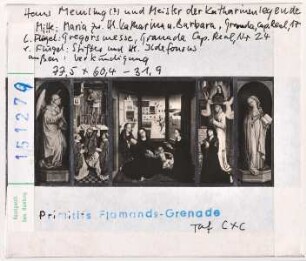 Hans Memling (?) und Meister der Katharinenlegende
Mitt: Maria zw. Hl. Katharina u. Barbara, Granada, Cap. Real, 17
l. Flügel: Gregorsmesse, Granada Cap. Real, Nr 24
r. Flügel: Stifter und Hl. Ildefonsus
außen: Verkündigung
77,5 x 60,4 - 31,9
151279
Primitifs Flamands-Grenade
Taf CXC